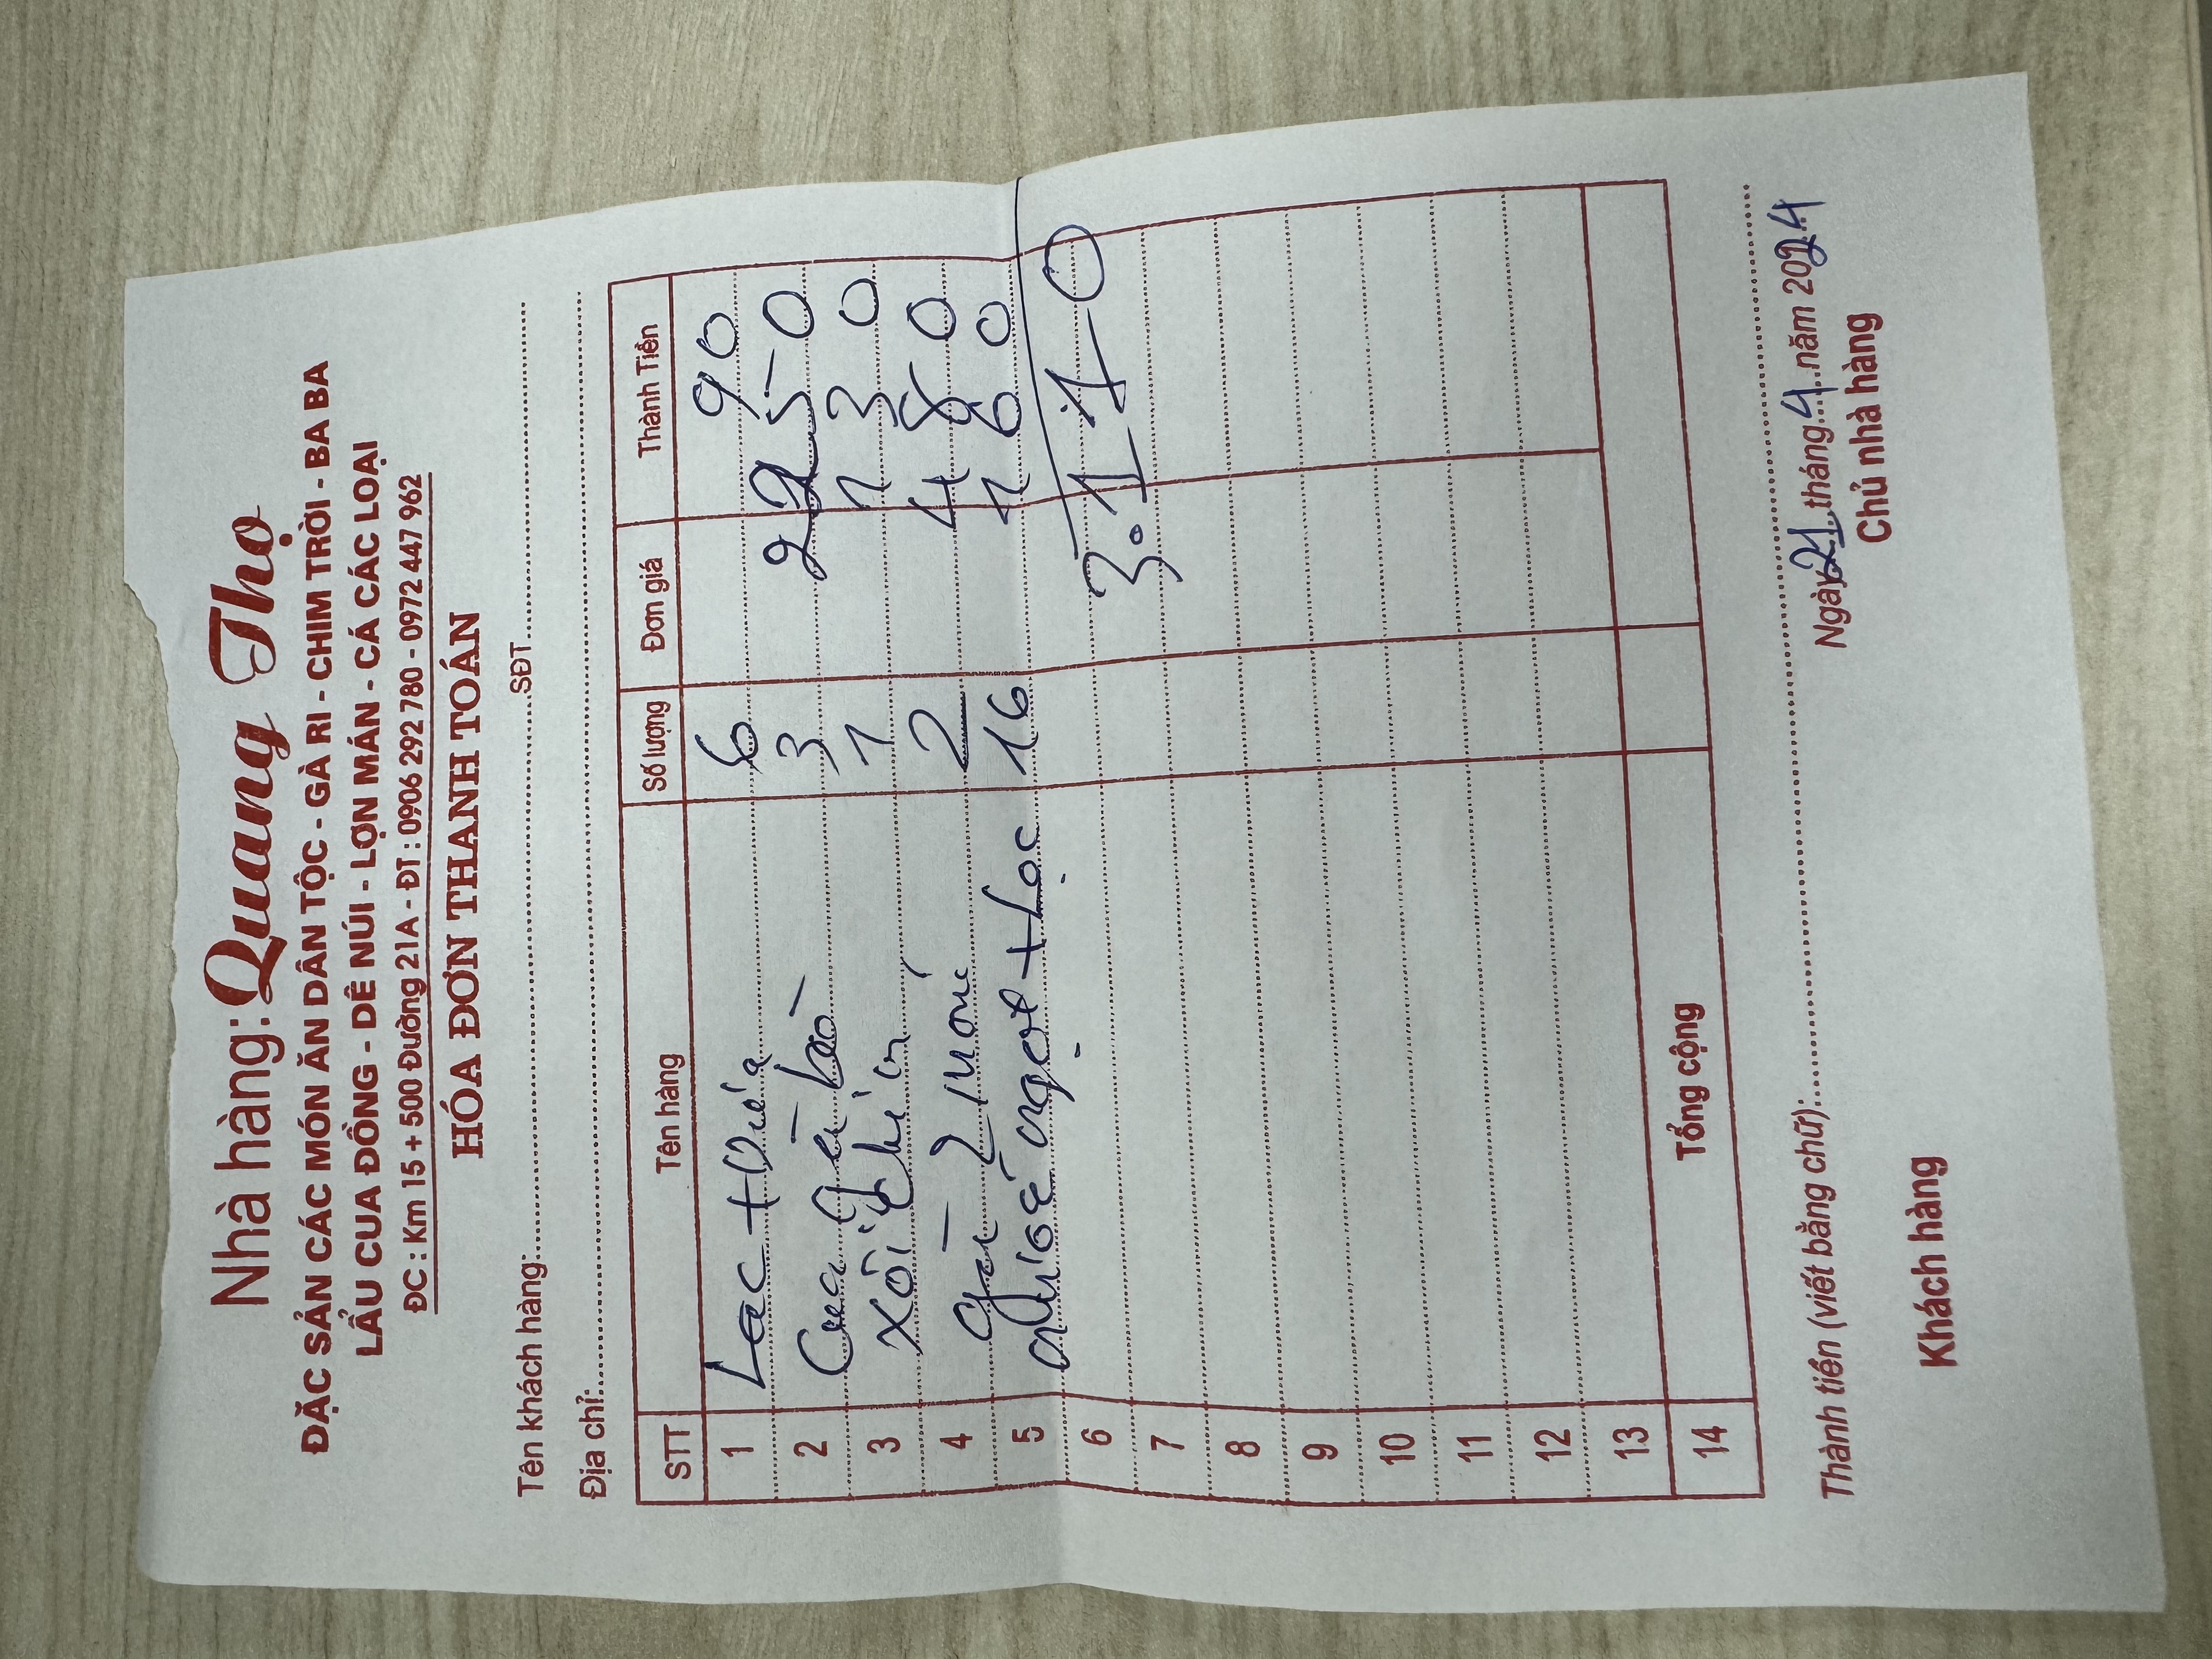 Nhà hàng: Quang Thọ
ĐẶC SẢN CÁC MÓN ĂN DÂN TỘC - GÀ RI - CHIM TRỜI - BA BA
LẨU CUA ĐỒNG - DÊ NÚI - LỢN MÁN - CÁ CÁC LOẠI
ĐC : Km 15 + 500 Đường 21A - ĐT : 0906 292 780 - 0972 447 962
HÓA ĐƠN THANH TOÁN
Tên khách hàng: SĐT
Địa chỉ:
STT Tên hàng Số lượng Đơn giá Thành Tiền
1 Lạc + Dưa 6 90
2 Cua gà bò 3 2250
3 Xôi chim 1 130
4 gà 2 món 2 480
5 nước ngọt + Lọc 16 160
6 3.110
7
8
9
10
11
12
13
14 Tổng cộng
Thành tiền (viết bằng chữ):
Ngày 21 tháng 4 năm 2024
Chủ nhà hàng
Khách hàng